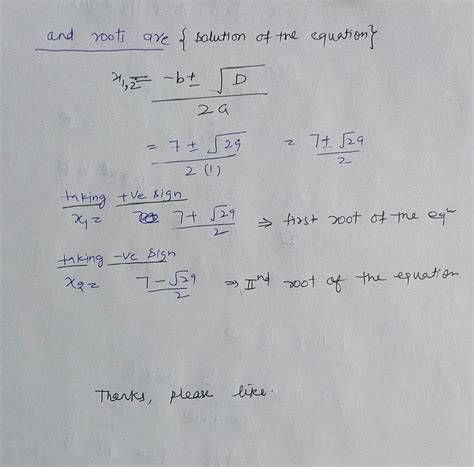 and roots are { solution of the equation}
x1,2 = -b ± √D / 2a
= 7 ± √29 / 2 (1) = 7 ± √29 / 2
taking +ve sign
x1 = 7 + √29 / 2 ⇒ first root of the eqn
taking -ve sign
x2 = 7 - √29 / 2 ⇒ IInd root of the equation
Thanks, please like.